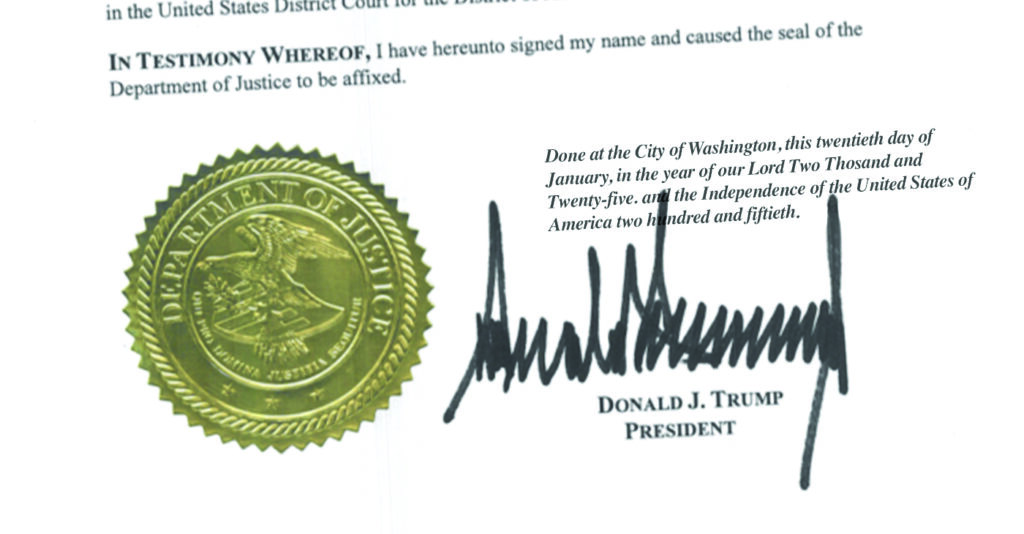 in the United States District Court for the District of
IN TESTIMONY WHEREOF, I have hereunto signed my name and caused the seal of the
Department of Justice to be affixed.
Done at the City of Washington, this twentieth day of
January, in the year of our Lord Two Thosand and
Twenty-five. and the Independence of the United States of
America two hundred and fiftieth.
DEPARTMENT OF JUSTICE
QUI PRO DOMINA JUSTITIA SEQUITUR
DONALD J. TRUMP
PRESIDENT